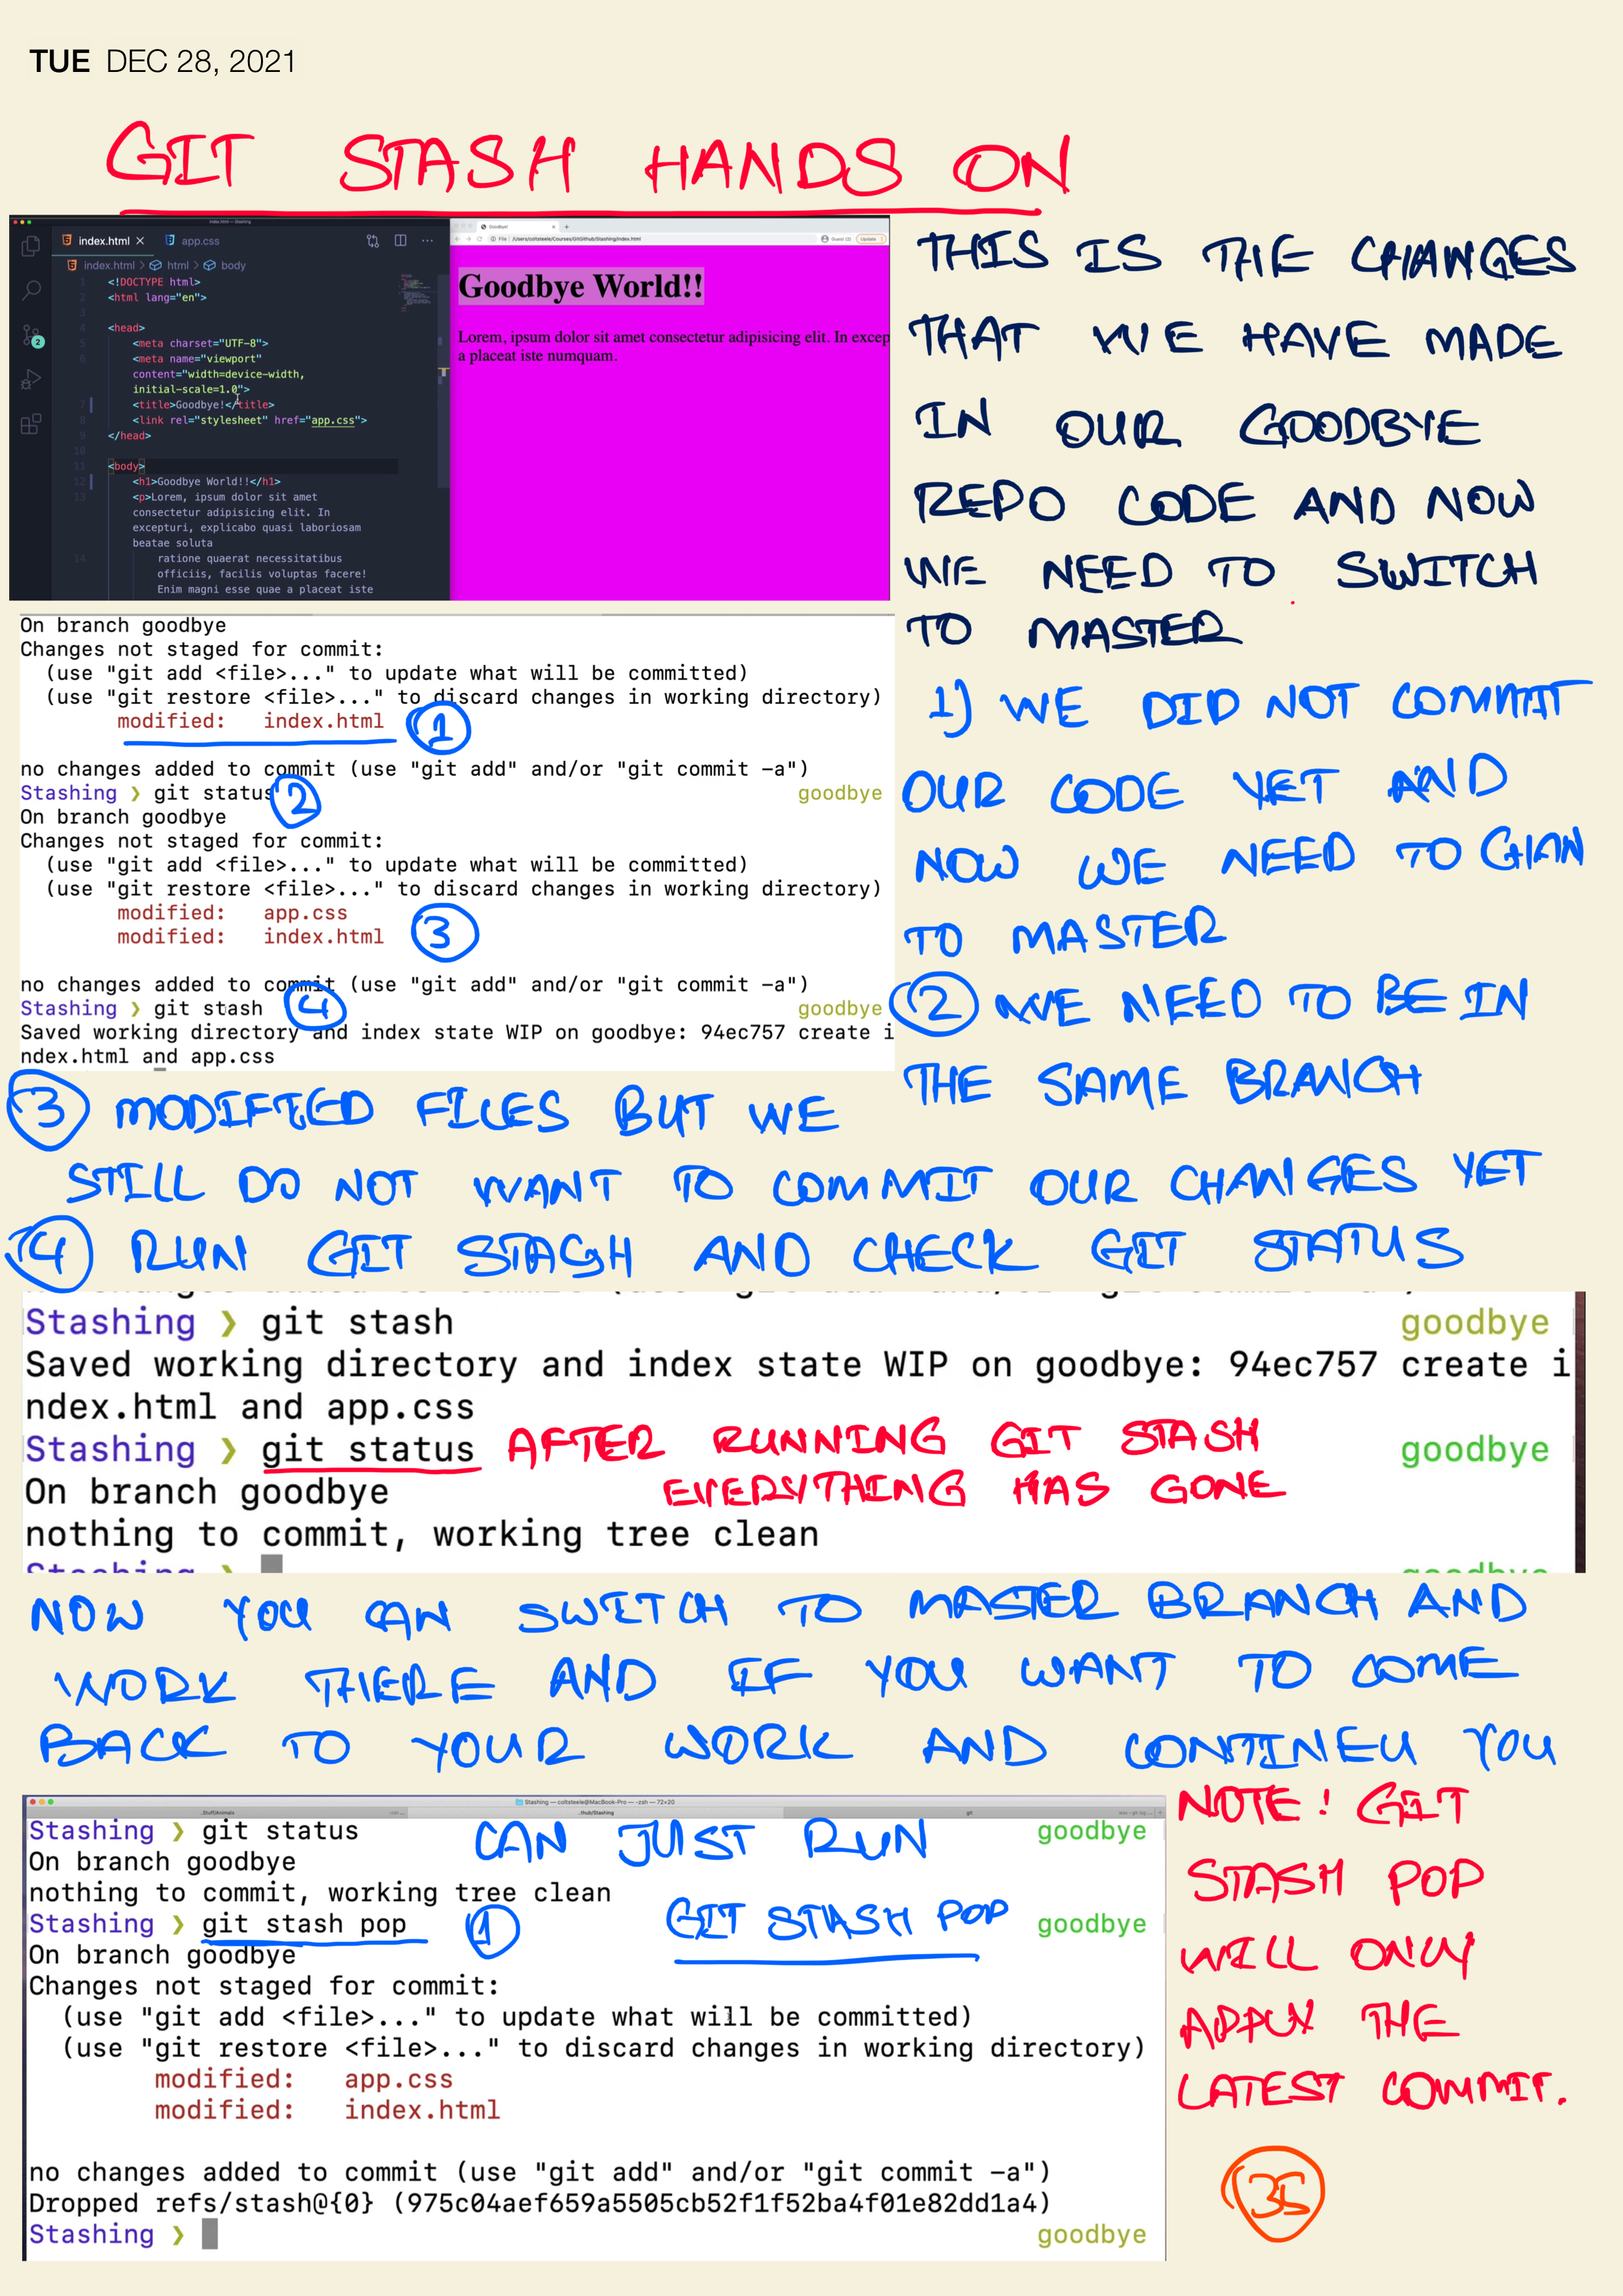 TUE DEC 28, 2021
GIT STASH HANDS ON
index.html
app.css
index.html > html > body
1 <!DOCTYPE html>
2 <html lang="en">
3
4 <head>
5 <meta charset="UTF-8">
6 <meta name="viewport"
content="width=device-width,
initial-scale=1.0">
7 <title>Goodbye!</title>
8 <link rel="stylesheet" href="app.css">
9 </head>
10
11 <body>
12 <h1>Goodbye World!!</h1>
13 <p>Lorem, ipsum dolor sit amet
consectetur adipisicing elit. In
excepturi, explicabo quasi laboriosam
beatae soluta
14 ratione quaerat necessitatibus
officiis, facilis voluptas facere!
Enim magni esse quae a placeat iste
2
Goodbye!
File | /Users/coltsteele/Courses/GitGithub/Stashing/index.html
Guest (2)
Update
Goodbye World!!
Lorem, ipsum dolor sit amet consectetur adipisicing elit. In excep
a placeat iste numquam.
THIS IS THE CHANGES
THAT WE HAVE MADE
IN OUR GOODBYE
REPO CODE AND NOW
WE NEED TO SWITCH
TO MASTER
On branch goodbye
Changes not staged for commit:
(use "git add <file>..." to update what will be committed)
(use "git restore <file>..." to discard changes in working directory)
modified: index.html 1
no changes added to commit (use "git add" and/or "git commit -a")
Stashing ❯ git status 2 goodbye
On branch goodbye
Changes not staged for commit:
(use "git add <file>..." to update what will be committed)
(use "git restore <file>..." to discard changes in working directory)
modified: app.css
modified: index.html 3
no changes added to commit (use "git add" and/or "git commit -a")
Stashing ❯ git stash 4 goodbye
Saved working directory and index state WIP on goodbye: 94ec757 create i
ndex.html and app.css
1) WE DID NOT COMMIT
OUR CODE YET AND
NOW WE NEED TO CHAN
TO MASTER
2 WE NEED TO BE IN
THE SAME BRANCH
3 MODIFIED FILES BUT WE
STILL DO NOT WANT TO COMMIT OUR CHANGES YET
4 RUN GIT STASH AND CHECK GIT STATUS
Stashing ❯ git stash goodbye
Saved working directory and index state WIP on goodbye: 94ec757 create i
ndex.html and app.css
Stashing ❯ git status goodbye
AFTER RUNNING GIT STASH
EVERYTHING HAS GONE
On branch goodbye
nothing to commit, working tree clean
NOW YOU CAN SWITCH TO MASTER BRANCH AND
WORK THERE AND IF YOU WANT TO COME
BACK TO YOUR WORK AND CONTINEU YOU
CAN JUST RUN
GIT STASH POP
Stashing — coltsteele@MacBook-Pro — -zsh — 72×20
Stashing ❯ git status goodbye
On branch goodbye
nothing to commit, working tree clean
Stashing ❯ git stash pop 1 goodbye
On branch goodbye
Changes not staged for commit:
(use "git add <file>..." to update what will be committed)
(use "git restore <file>..." to discard changes in working directory)
modified: app.css
modified: index.html
no changes added to commit (use "git add" and/or "git commit -a")
Dropped refs/stash@{0} (975c04aef659a5505cb52f1f52ba4f01e82dd1a4)
Stashing ❯ goodbye
NOTE! GIT
STASH POP
WILL ONLY
APPLY THE
LATEST COMMIT.